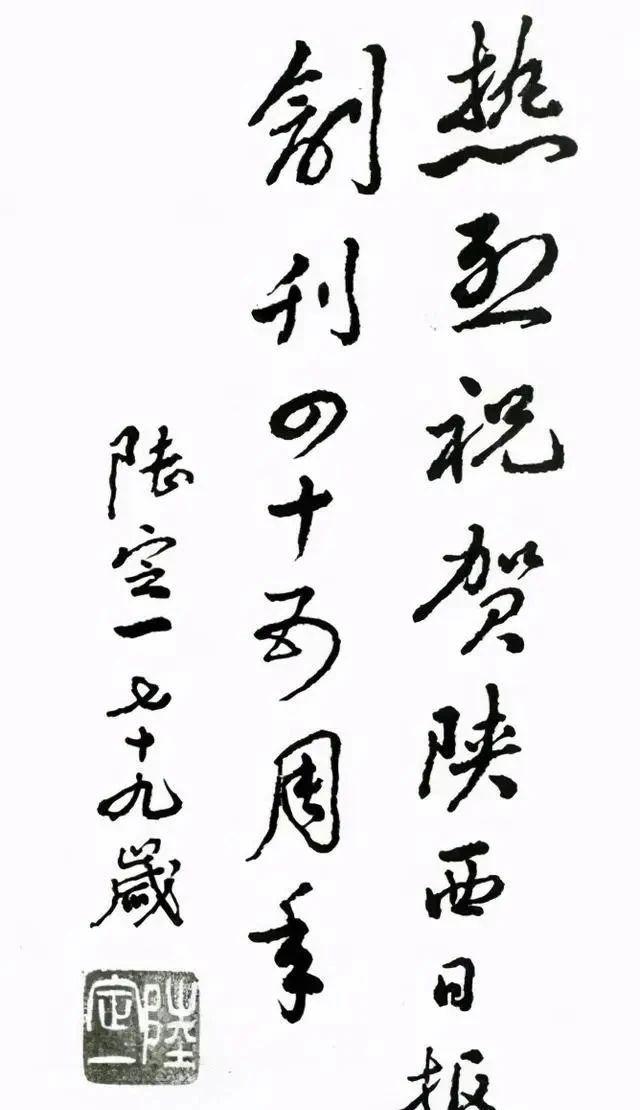 热烈祝贺陕西日报
創刊四十五周年
陆定一七十九歲
陸定一